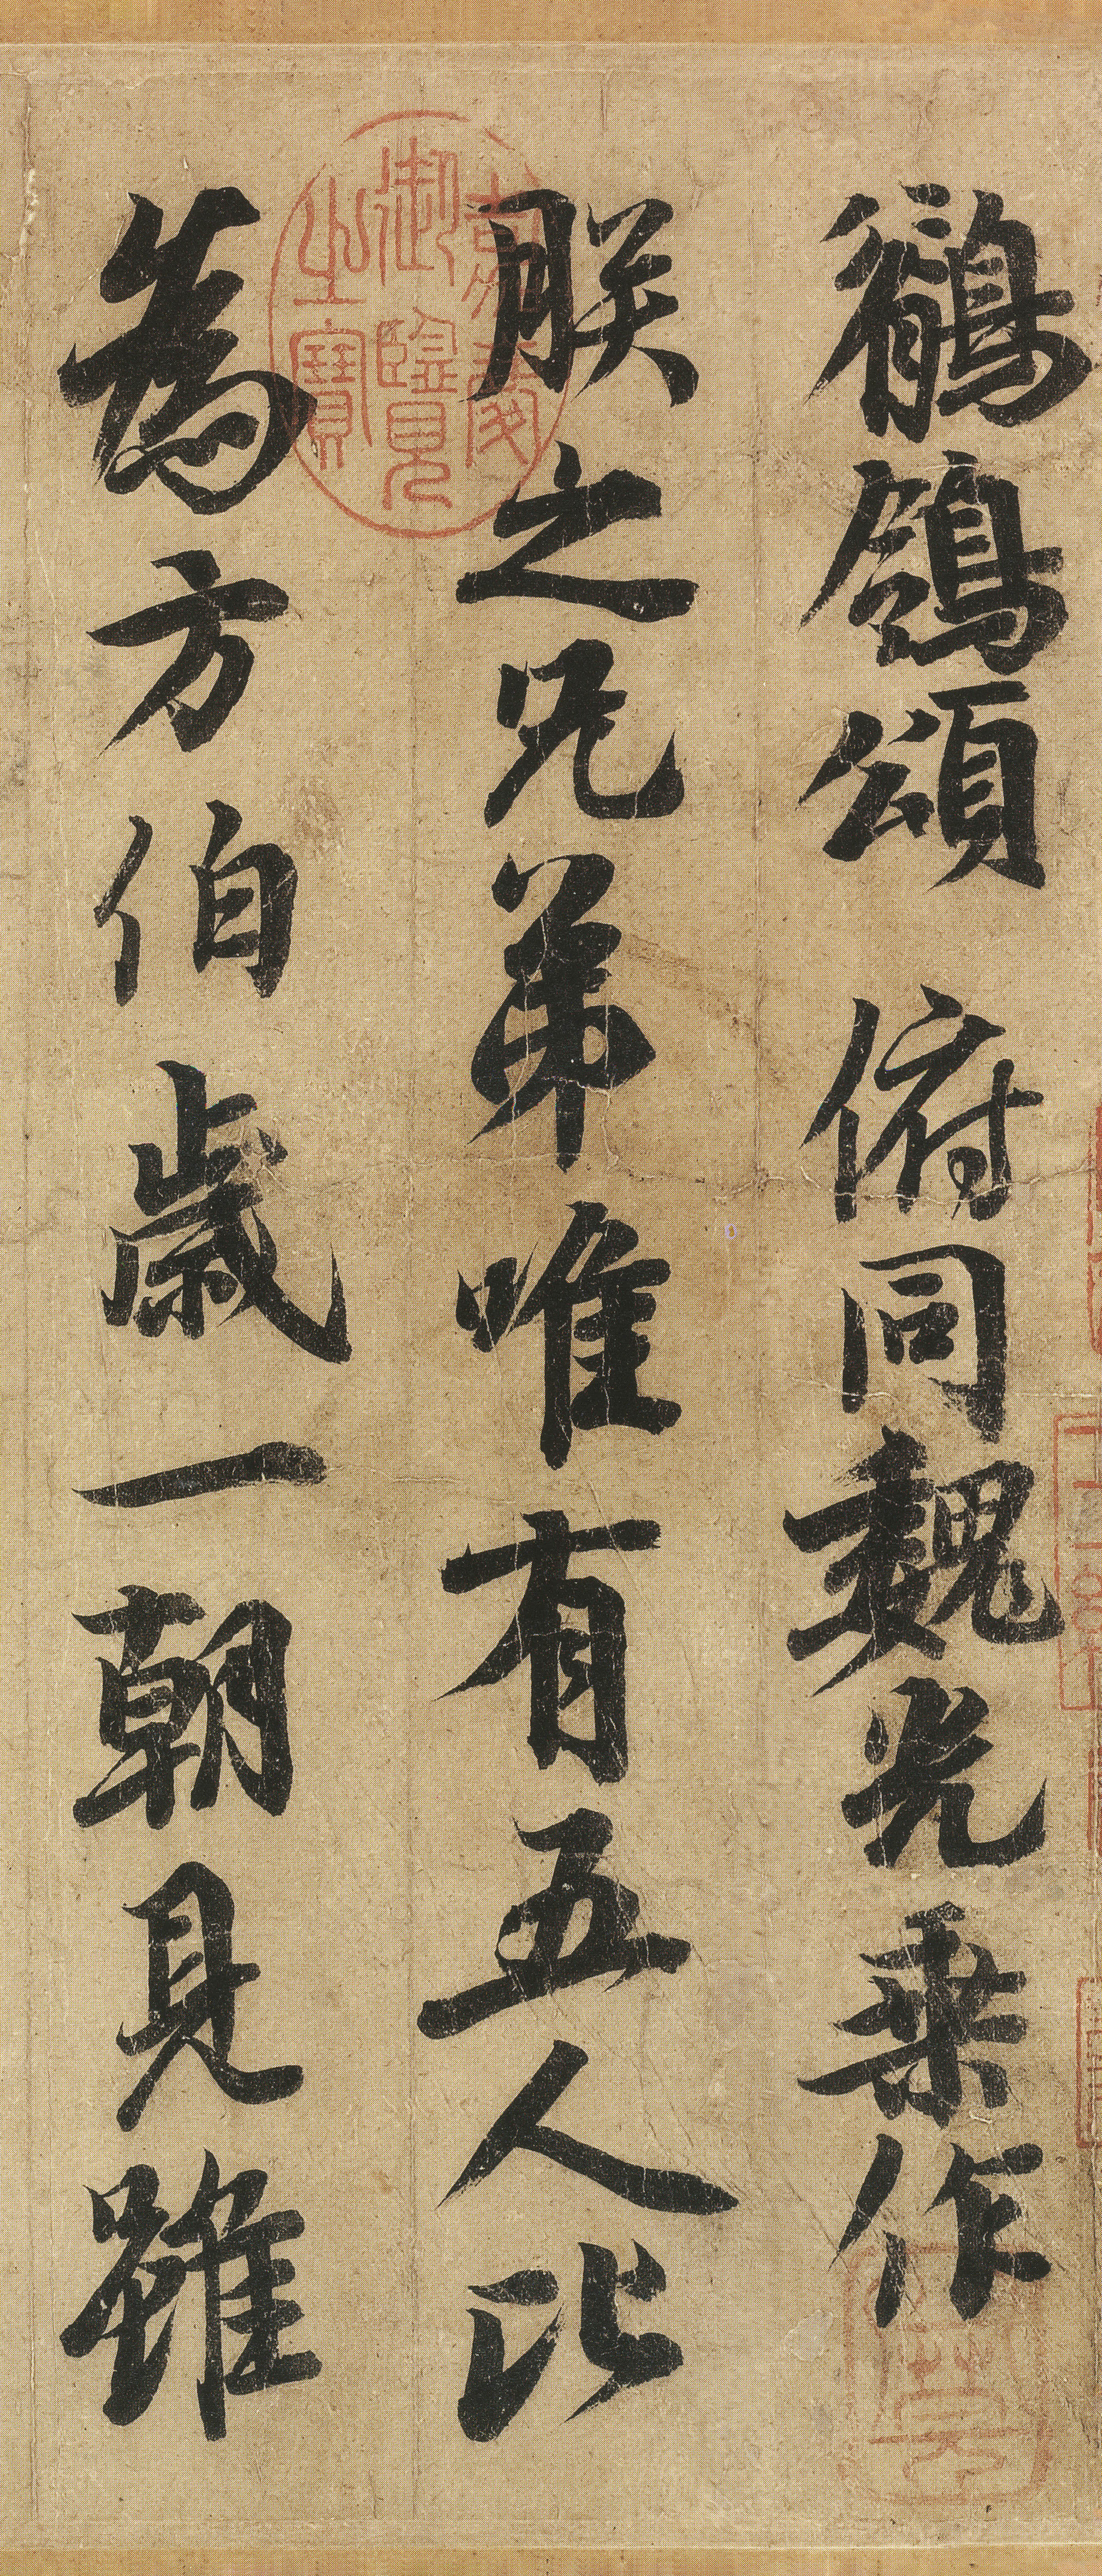 鶺鴒頌 俯同魏光乗作
朕之兄弟唯有五人比
為方伯歳一朝見雖
嘉慶御覽之寶